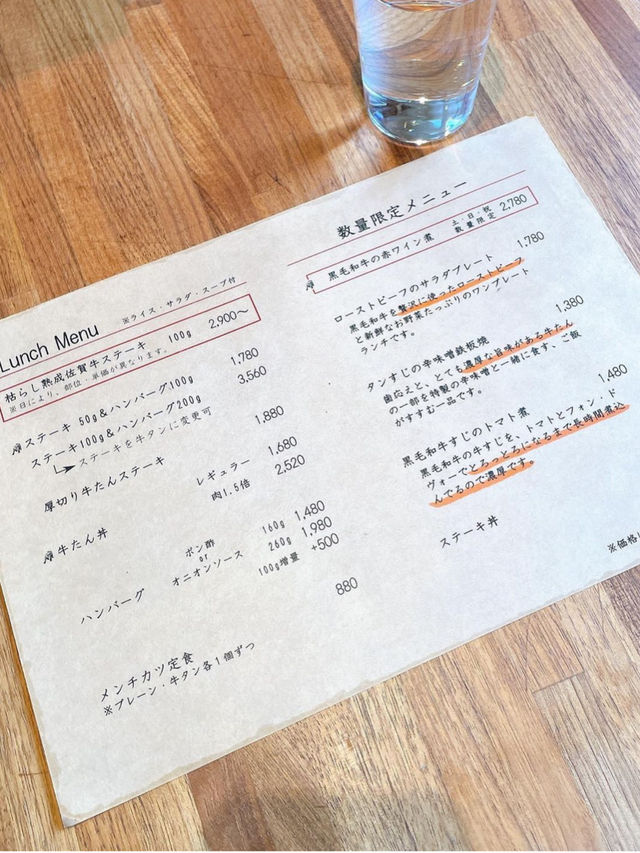 Lunch Menu ※ライス・サラダ・スープ付
枯らし熟成佐賀牛ステーキ 100g 2,900〜
※日により、部位・単価が異なります。
ステーキ 50g&ハンバーグ100g 1,780
ステーキ100g&ハンバーグ200g 3,560
ステーキを牛タンに変更可
厚切り牛たんステーキ 1,880
牛たん丼 レギュラー 1,680
肉1.5倍 2,520
ハンバーグ ポン酢 160g 1,480
or
オニオンソース 260g 1,980
100g増量 +500
メンチカツ定食 880
※プレーン・牛タン各1個ずつ
数量限定メニュー
黒毛和牛の赤ワイン煮 土・日・祝 数量限定 2,780
ローストビーフのサラダプレート 1,780
黒毛和牛を贅沢に使ったローストビーフ
と新鮮なお野菜たっぷりのワンプレート
ランチです。
タンすじの辛味噌鉄板焼 1,380
歯応えと、とても濃厚な旨味がある牛たん
の一部を特製の辛味噌と一緒に食す、ご飯
がすすむ一品です。
黒毛和牛すじのトマト煮 1,480
黒毛和牛の牛すじを、トマトとフォン・ド
ヴォーでとろっとろになるまで長時間煮込
んでるので濃厚です。
ステーキ丼
※価格